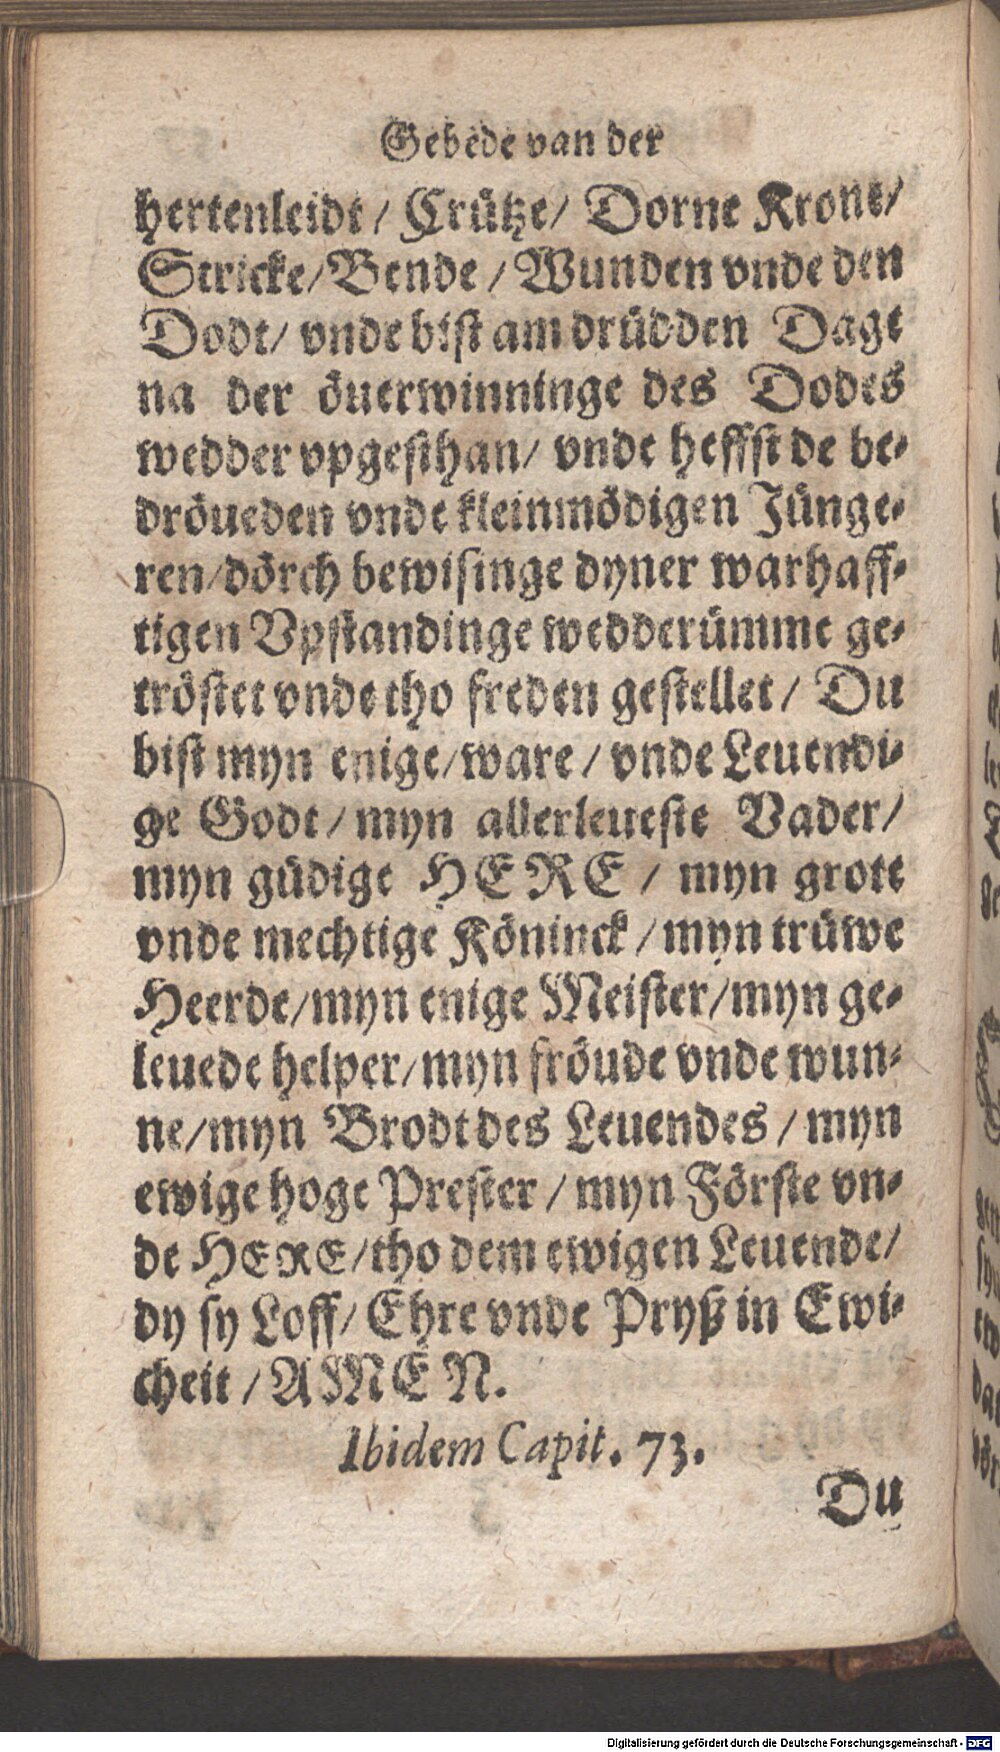 Gebede van der
hertenleidt / Crütze / Dorne Krone /
Stricke / Bende / Wunden vnde den
Dodt / vnde bist am drüdden Dage
na der öuerwinninge des Dodes
wedder vpgesthan / vnde heffst de be-
dröueden vnde kleinmödigen Jünge-
ren / dörch bewisinge dyner warhaff-
tigen Vpstandinge wedderümme ge-
tröstet vnde tho freden gestellet / Du
bist myn enige / ware / vnde Leuendi-
ge Godt / myn allerleueste Vader /
myn güdige HERE / myn grote
vnde mechtige Köninck / myn trüwe
Heerde / myn enige Meister / myn ge-
leuede helper / myn fröude vnde wun-
ne / myn Brodt des Leuendes / myn
ewige hoge Prester / myn Förste vn-
de HERE / tho dem ewigen Leuende /
dy sy Loff / Ehre vnde Pryß in Ewi-
cheit / AMEN.
Ibidem Capit. 73.
Du
Digitalisierung gefördert durch die Deutsche Forschungsgemeinschaft - DFG